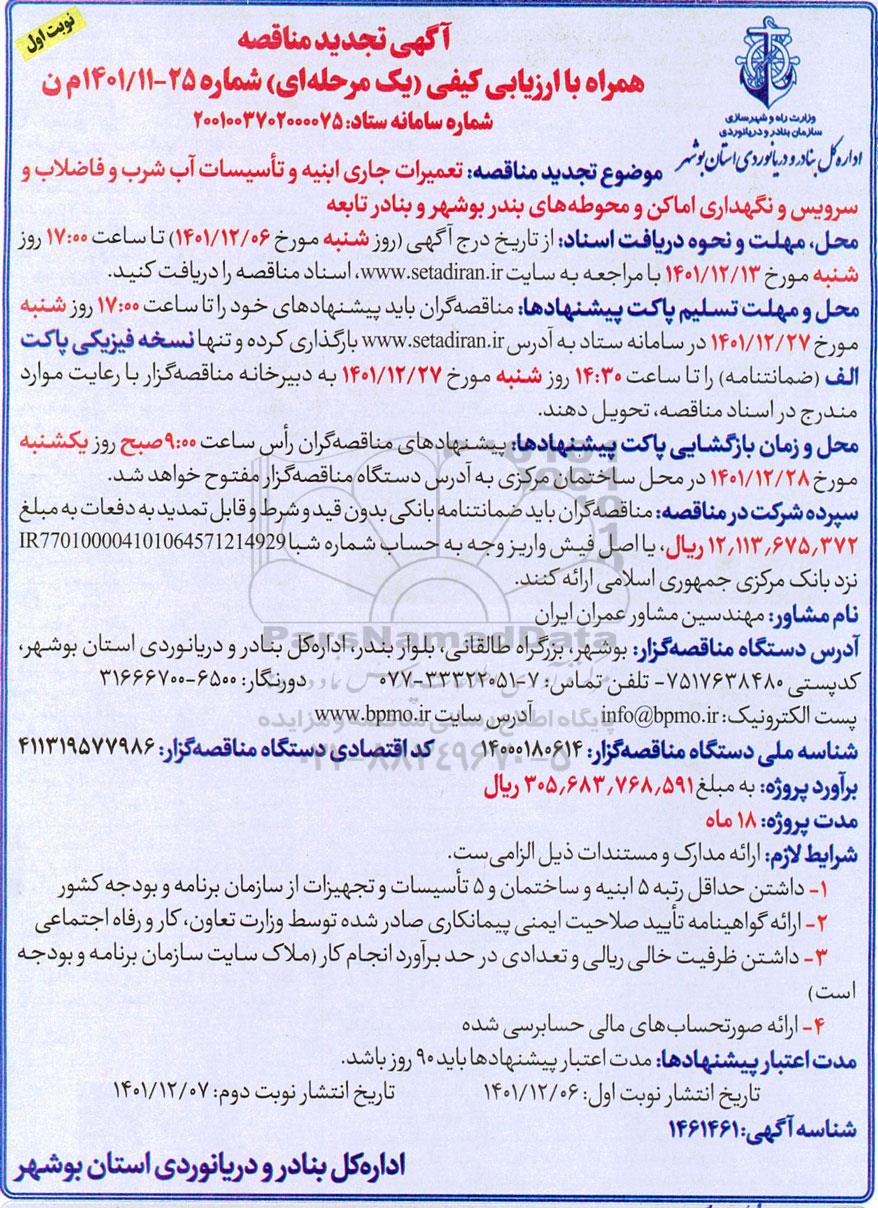 نوبت اول
آگهی تجدید مناقصه
همراه با ارزیابی کیفی (یک مرحله‌ای) شماره ۲۵-۱۴۰۱/۱۱م ن
شماره سامانه ستاد: ۲۰۰۱۰۰۳۷۰۲۰۰۰۰۷۵
وزارت راه و شهرسازی
سازمان بنادر و دریانوردی
اداره کل بنادر و دریانوردی استان بوشهر
موضوع تجدید مناقصه: تعمیرات جاری ابنیه و تأسیسات آب شرب و فاضلاب و
سرویس و نگهداری اماکن و محوطه‌های بندر بوشهر و بنادر تابعه
محل، مهلت و نحوه دریافت اسناد: از تاریخ درج آگهی (روز شنبه مورخ ۱۴۰۱/۱۲/۰۶) تا ساعت ۱۷:۰۰ روز
شنبه مورخ ۱۴۰۱/۱۲/۱۳ با مراجعه به سایت www.setadiran.ir، اسناد مناقصه را دریافت کنید.
محل و مهلت تسلیم پاکت پیشنهادها: مناقصه‌گران باید پیشنهادهای خود را تا ساعت ۱۷:۰۰ روز شنبه
مورخ ۱۴۰۱/۱۲/۲۷ در سامانه ستاد به آدرس www.setadiran.ir بارگذاری کرده و تنها نسخه فیزیکی پاکت
الف (ضمانتنامه) را تا ساعت ۱۴:۳۰ روز شنبه مورخ ۱۴۰۱/۱۲/۲۷ به دبیرخانه مناقصه‌گزار با رعایت موارد
مندرج در اسناد مناقصه، تحویل دهند.
محل و زمان بازگشایی پاکت پیشنهادها: پیشنهادهای مناقصه‌گران رأس ساعت ۹:۰۰صبح روز یکشنبه
مورخ ۱۴۰۱/۱۲/۲۸ در محل ساختمان مرکزی به آدرس دستگاه مناقصه‌گزار مفتوح خواهد شد.
سپرده شرکت در مناقصه: مناقصه‌گران باید ضمانتنامه بانکی بدون قید و شرط و قابل تمدید به دفعات به مبلغ
۱۲,۱۱۳,۶۷۵,۳۷۲ ریال، یا اصل فیش واریز وجه به حساب شماره شبا IR770100004101064571214929
نزد بانک مرکزی جمهوری اسلامی ارائه کنند.
نام مشاور: مهندسین مشاور عمران ایران
آدرس دستگاه مناقصه‌گزار: بوشهر، بزرگراه طالقانی، بلوار بندر، اداره‌کل بنادر و دریانوردی استان بوشهر،
کدپستی ۷۵۱۷۶۳۸۴۸۰- تلفن تماس: ۷-۳۳۳۲۲۰۵۱-۰۷۷ دورنگار: ۶۵۰۰-۳۱۶۶۶۷۰۰
پست الکترونیک: info@bpmo.ir آدرس سایت www.bpmo.ir
شناسه ملی دستگاه مناقصه‌گزار: ۱۴۰۰۰۱۸۰۶۱۴ کد اقتصادی دستگاه مناقصه‌گزار: ۴۱۱۳۱۹۵۷۷۹۸۶
برآورد پروژه: به مبلغ ۳۰۵,۶۸۳,۷۶۸,۵۹۱ ریال
مدت پروژه: ۱۸ ماه
شرایط لازم: ارائه مدارک و مستندات ذیل الزامی‌ست.
۱- داشتن حداقل رتبه ۵ ابنیه و ساختمان و ۵ تأسیسات و تجهیزات از سازمان برنامه و بودجه کشور
۲- ارائه گواهینامه تأیید صلاحیت ایمنی پیمانکاری صادر شده توسط وزارت تعاون، کار و رفاه اجتماعی
۳- داشتن ظرفیت خالی ریالی و تعدادی در حد برآورد انجام کار (ملاک سایت سازمان برنامه و بودجه
است)
۴- ارائه صورتحساب‌های مالی حسابرسی شده
مدت اعتبار پیشنهادها: مدت اعتبار پیشنهادها باید ۹۰ روز باشد.
تاریخ انتشار نوبت اول: ۱۴۰۱/۱۲/۰۶ تاریخ انتشار نوبت دوم: ۱۴۰۱/۱۲/۰۷
شناسه آگهی: ۱۴۶۱۴۶۱
اداره‌کل بنادر و دریانوردی استان بوشهر
ParsNamadData
پایگاه اطلاع رسانی مناقصه و مزایده
۰۲۱-۸۸۳۴۹۶۷۰-۵